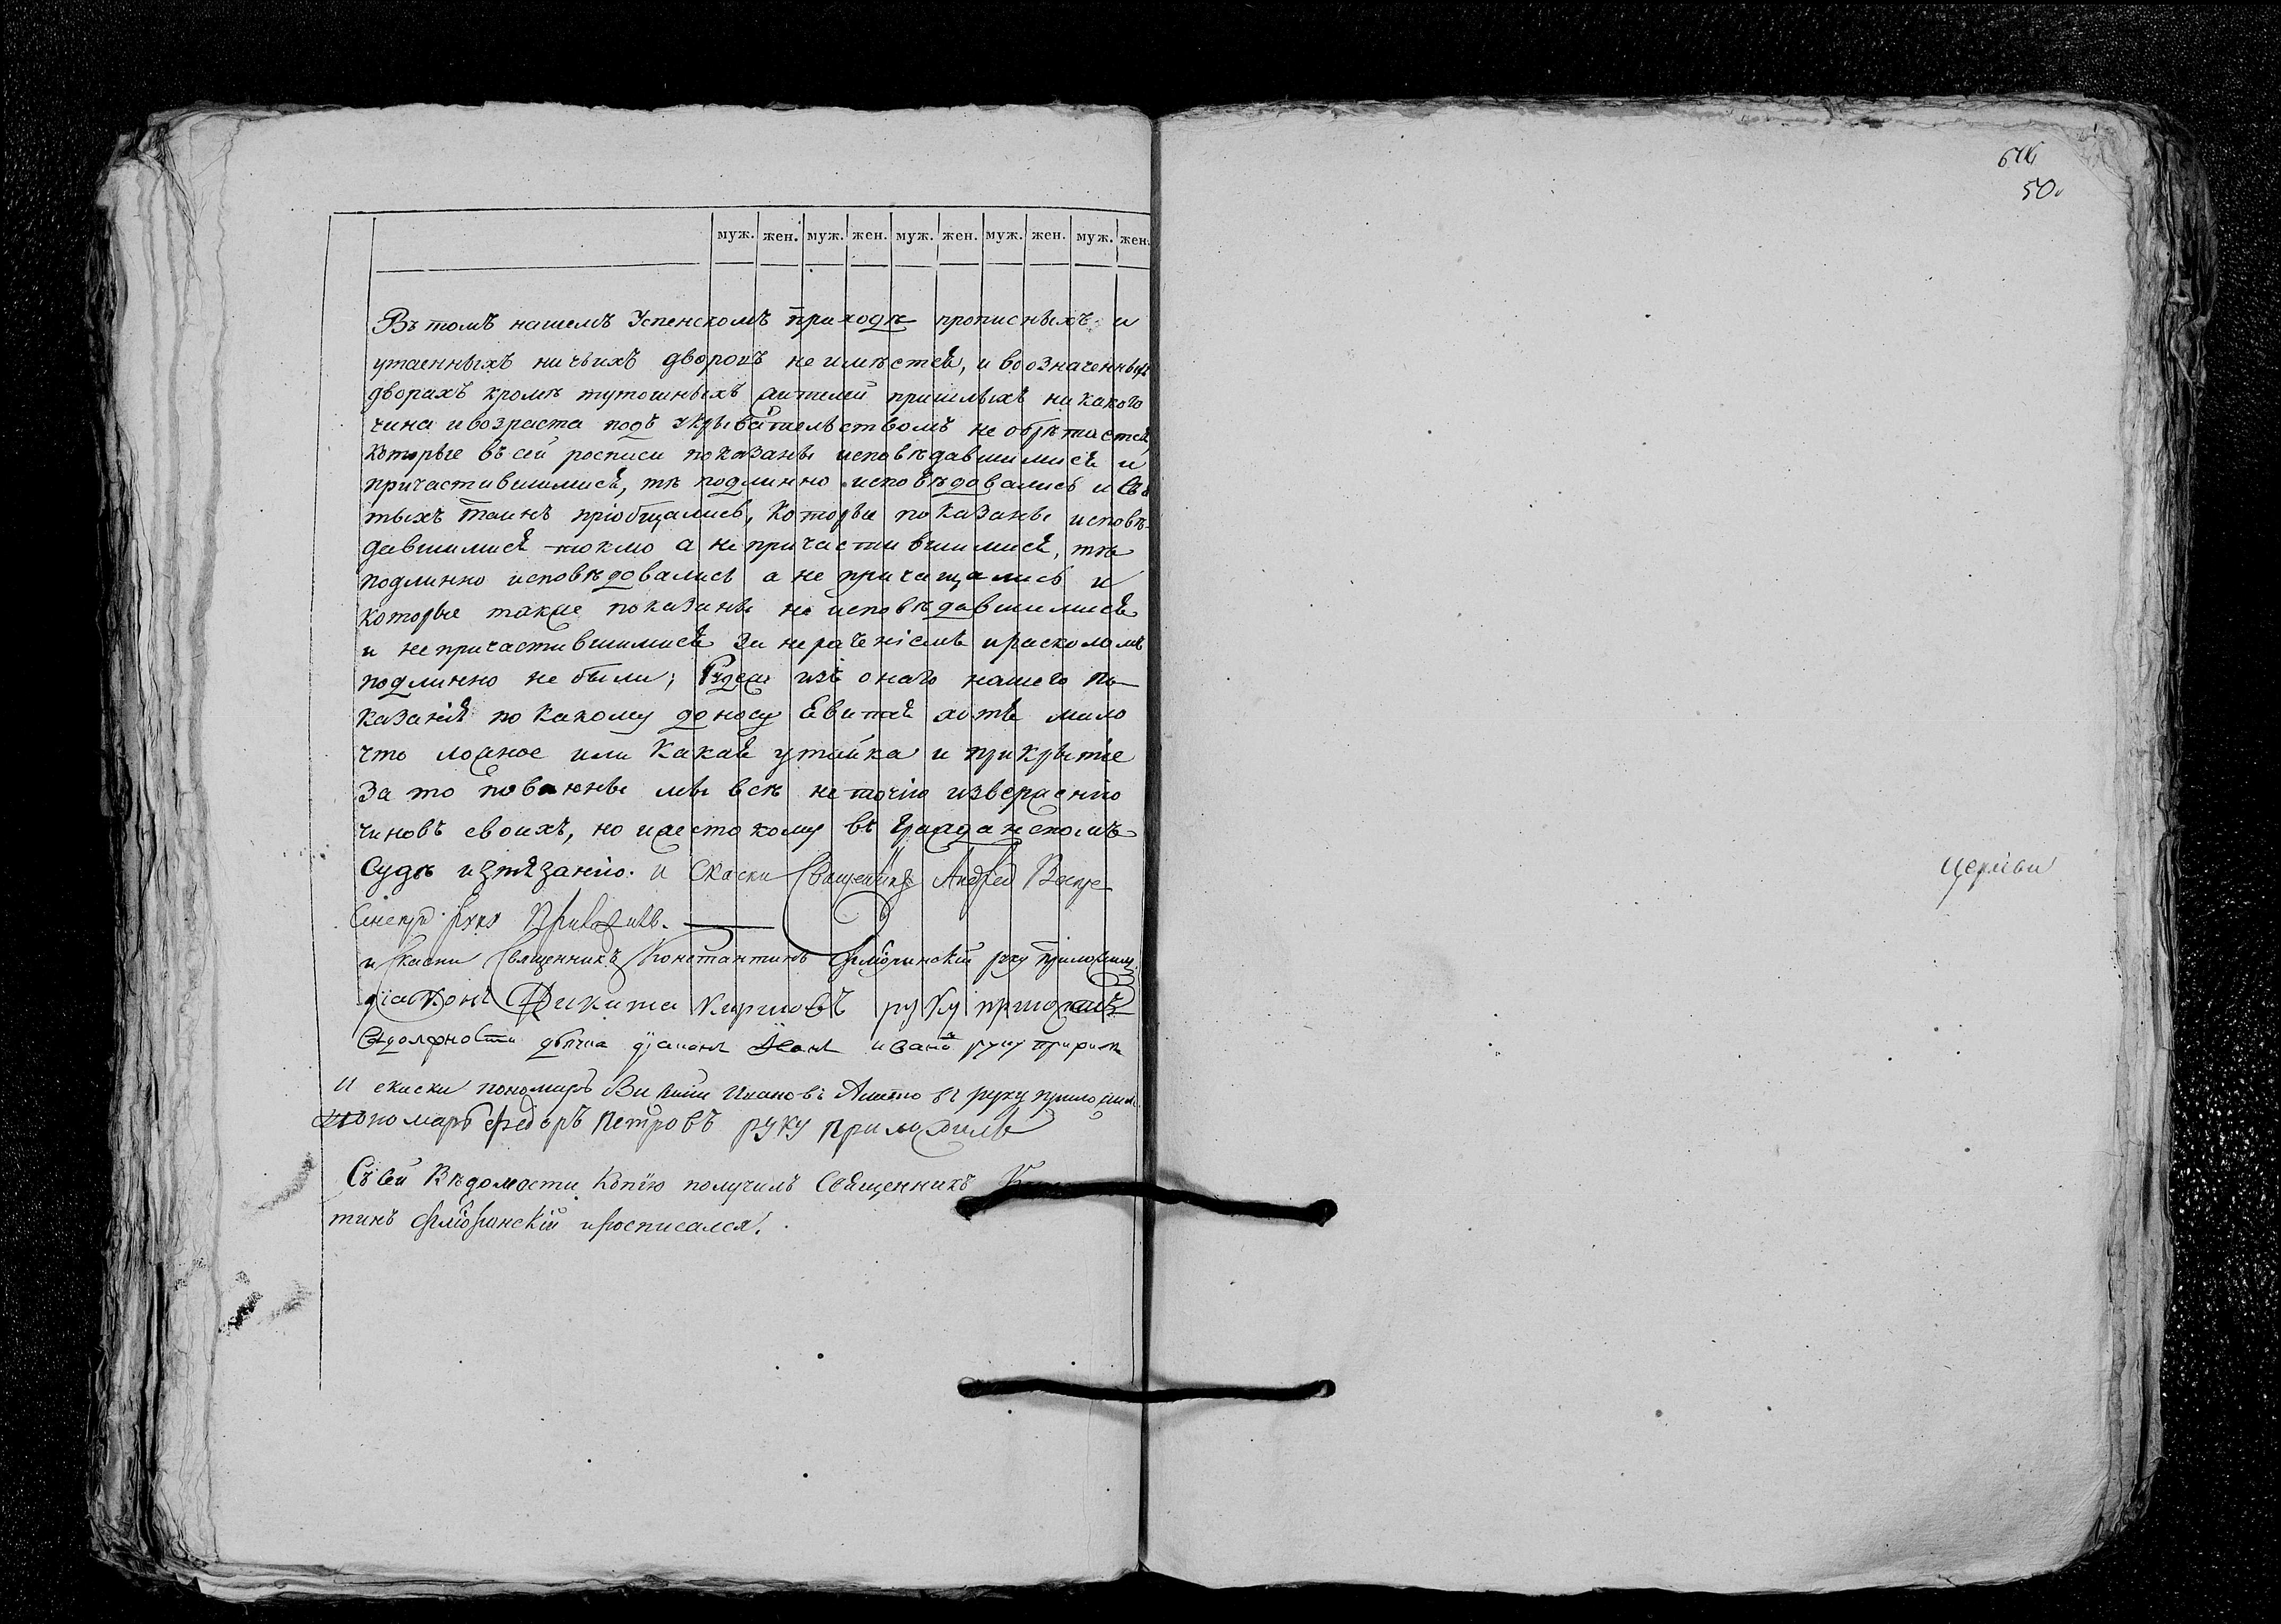 муж. жен. муж. жен. муж. жен. муж. жен. муж. жен.
Въ томъ нашемъ Успенскомъ приходѣ прописныхъ и
утаенныхъ ничьихъ дворовъ не имѣется, и во означенных
дворахъ кромѣ тутошныхъ жителей пришлыхъ никакого
чина и возраста подъ укрывательствомъ не обрѣтается,
которые въ сей росписи показаны исповѣдавшимися и
причастившимися, тѣ подлинно исповѣдовались и Свя
тыхъ таинъ пріобщались, которые показаны исповѣ-
давшимися токмо а непричастившимися, тѣ
подлинно исповѣдовались а не причащались и
которые также показаны не исповѣдавшимися
и непричастившимися за нераченіемъ и расколомъ
подлинно не были; Ежели изъ онаго нашего по-
казанія по какому доносу явится хотя мало
что ложное или какая утайка и прикрытіе
за то повинны мы всѣ неточію изверженію
чиновъ своихъ, но и жестокому въ гражданскомъ
судѣ изтязанію. и Скаски Священникъ Андрей
руку Приложилъ.
и скаски Священникъ Константинъ Фліоринскій руку приложилъ
діаконъ Никита Кириловъ руку приложилъ
дьячка діаконъ руку
и скаски пономарь Ивановъ руку приложилъ
пономарь федоръ Петровъ руку приложилъ
Съ сей Вѣдомости копію получилъ Священникъ
тинъ Фліоринскій и росписался.
50.
Церкви